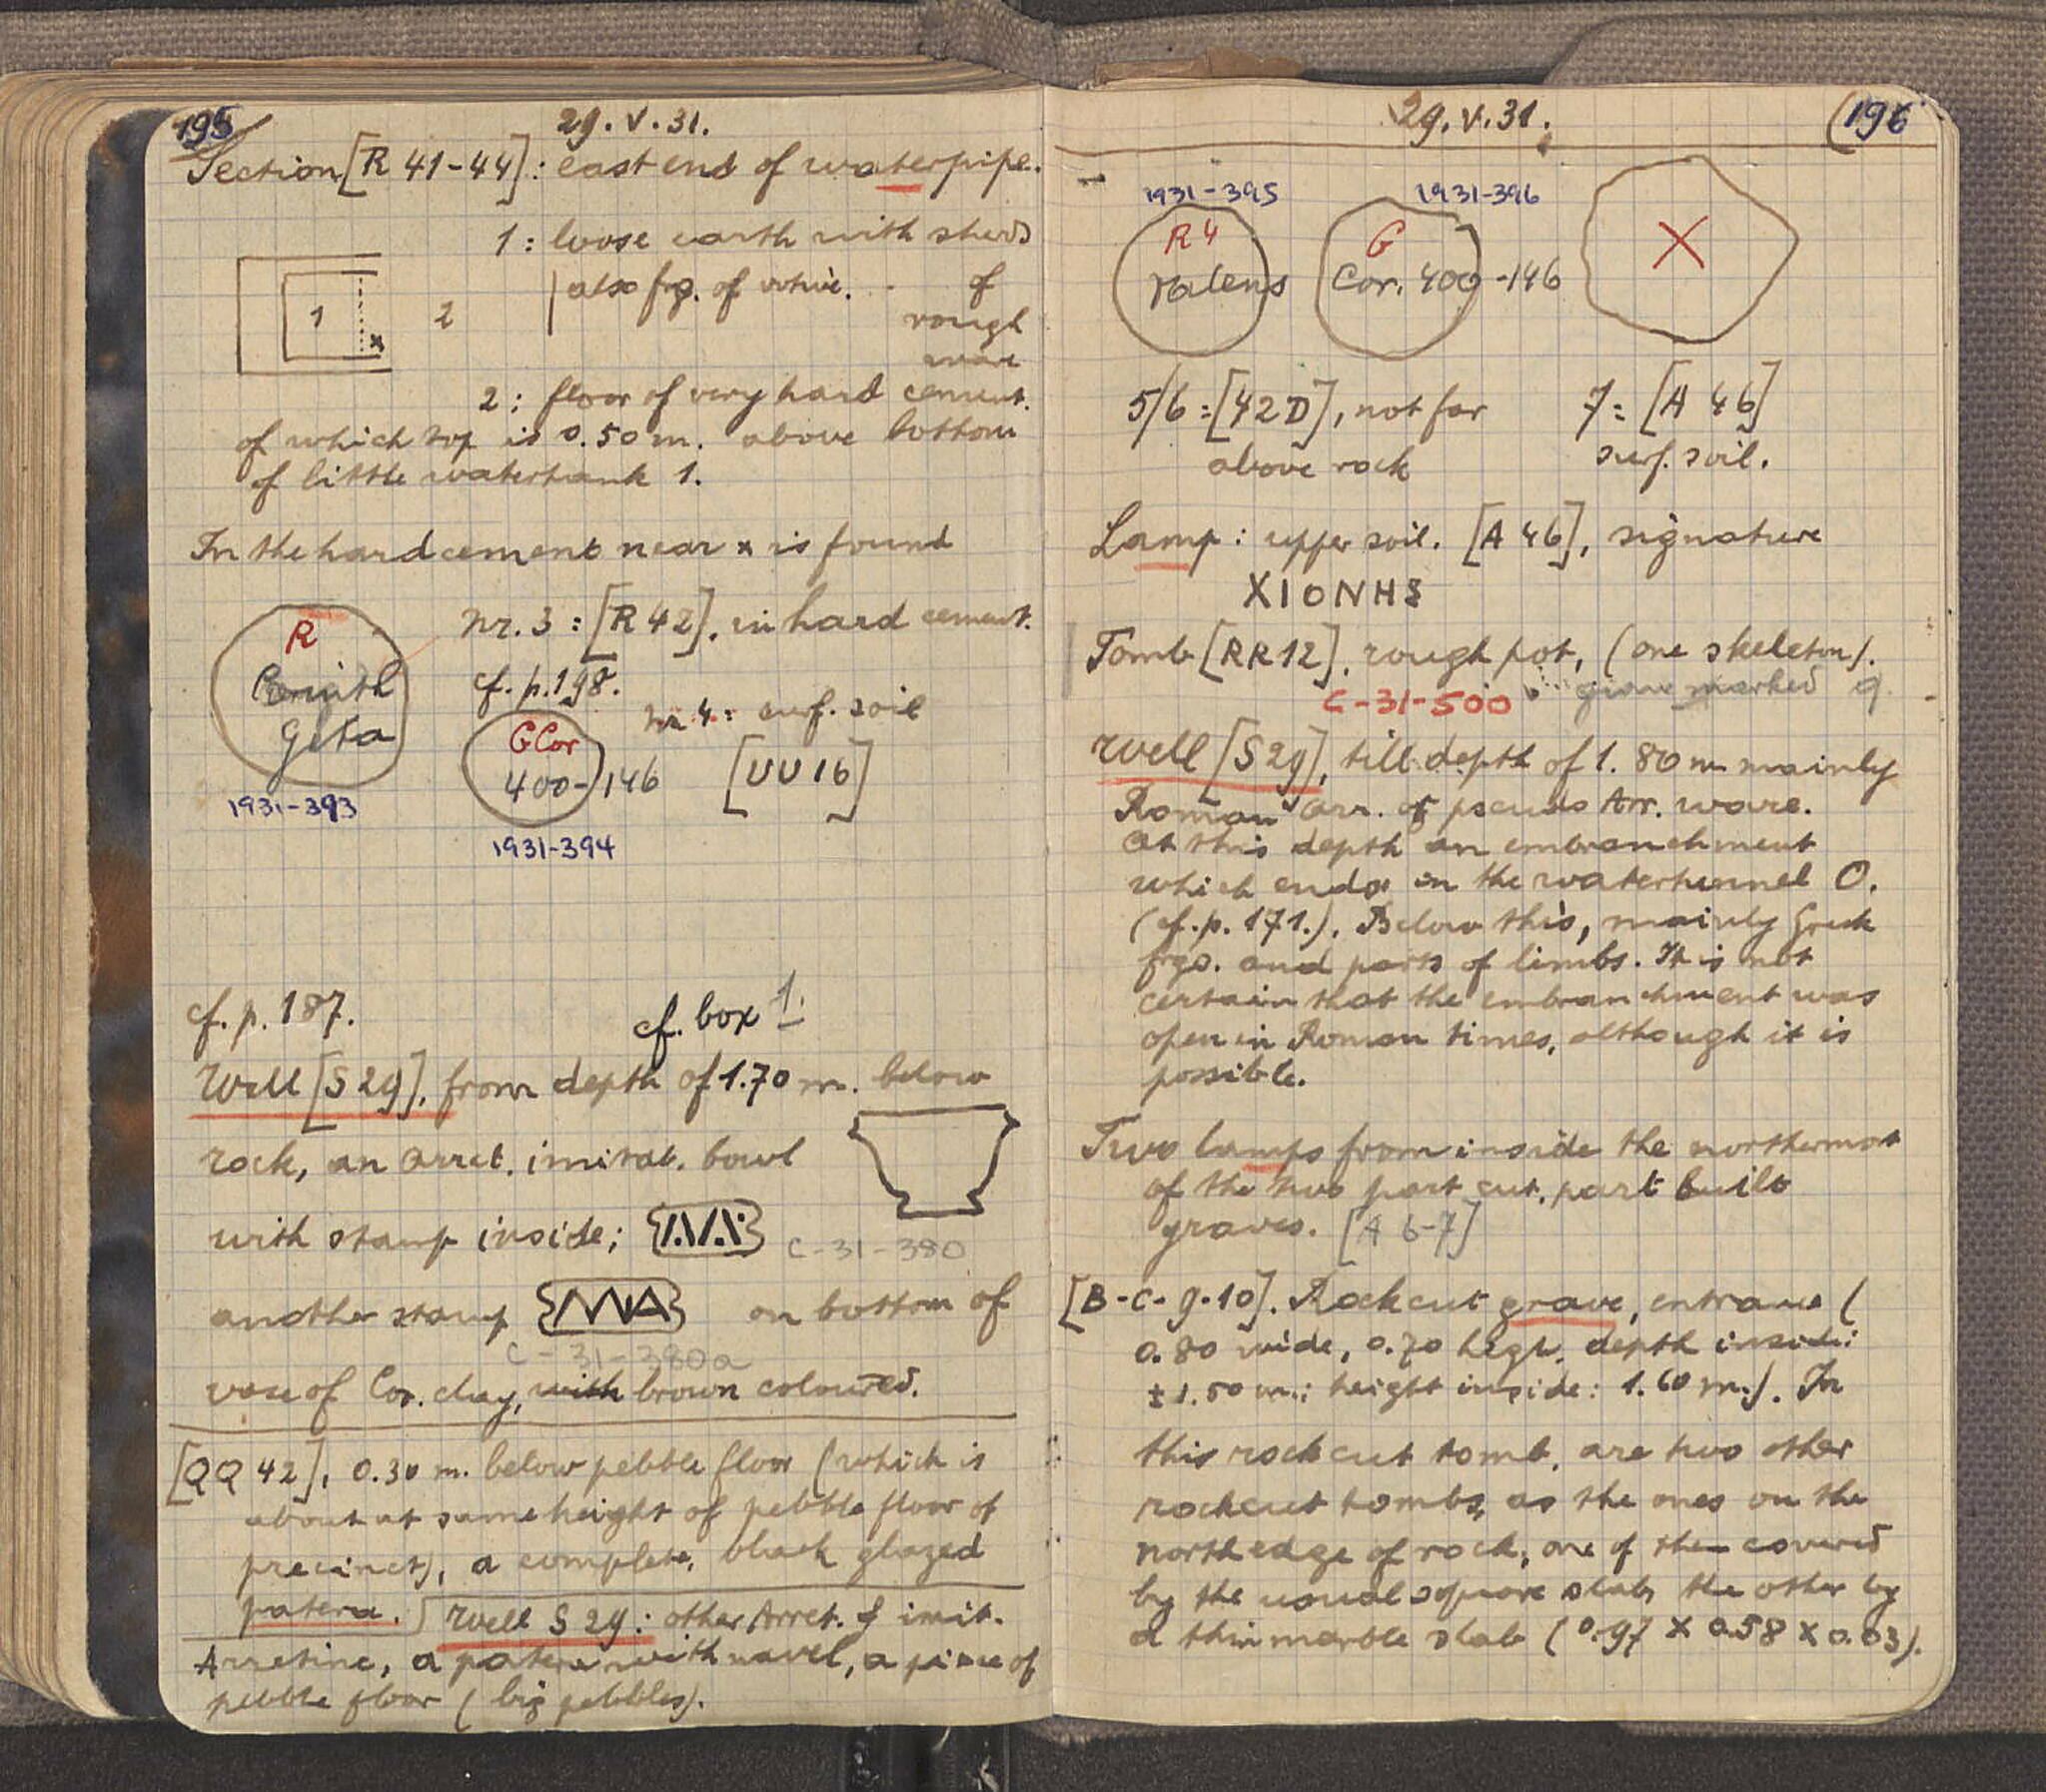 195
29.V.31.
Section [R 41-44]: east end of waterpipe.
1: loose earth with sherds
also frg. of of
rough
ware
1
2
x
2: floor of very hard cement.
of which top is 0.50 m. above bottom
of little watertank 1.
In the hard cement near x is found
R
Corinth
Geta
1931-393
nr. 3 = [R 42], in hard cement.
cf. p. 198.
nr 4: surf. soil
G Cor
400-146
[UU 16]
1931-394
cf. p. 187.
cf. box 1.
Well [S 29], from depth of 1.70 m. below
rock, an arret. imitat. bowl
with stamp inside;
C-31-380
another stamp on bottom of
C-31-380a
vase of Cor. clay, with brown coloured.
[QQ 42], 0.30 m. below pebble floor (which is
about at same height of pebble floor of
precinct), a complete, black glazed
patera. Well S 29: other Arret. & imit.
Arretine, a patera with navel, a piece of
pebble floor (big pebbles).
29.V.31.
196
1931-395
1931-396
R 4
Valens
G
Cor. 400-146
X
5/6 = [42 D], not far
above rock
7 = [A 46]
surf. soil.
Lamp: upper soil. [A 46], signature
XIONHS
Tomb [RR 12], rough pot, (one skeleton).
C-31-500 grave marked 9
Well [S 29], till depth of 1.80 m mainly
Roman arr. of pseudo Arr. ware.
At this depth an embranchment
which ends in the watertunnel O.
(cf. p. 171.). Below this, mainly Greek
frgs. and parts of limbs. It is not
certain that the embranchment was
open in Roman times, although it is
possible.
Two lamps from inside the northermost
of the two part cut, part built
graves. [A 6-7]
[B-C-9-10]. Rockcut grave, entrance (
0.80 wide, 0.70 hegh, depth inside:
± 1.50 m.; height inside: 1.60 m.). In
this rockcut tomb, are two other
rockcut tombs, as the ones on the
north edge of rock, one of them covered
by the usual square slab, the other by
a thin marble slab (0.97 x 0.58 x 0.03).